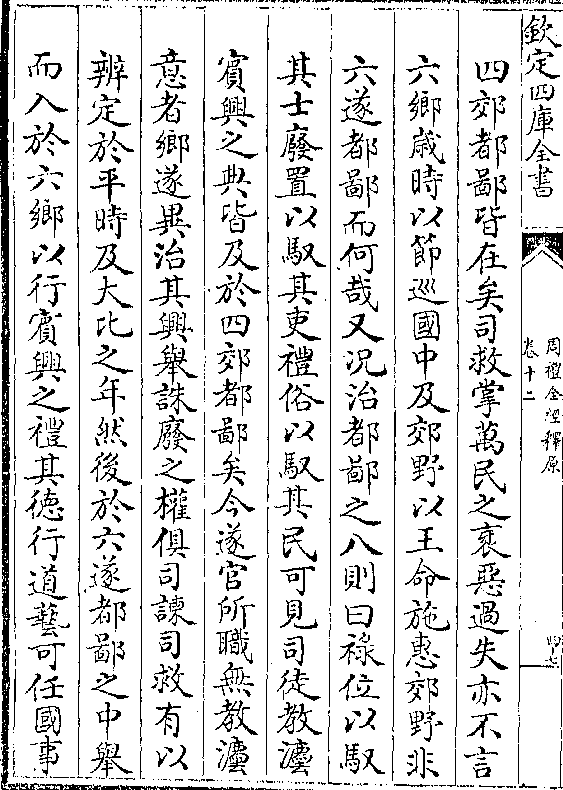 欽定四庫全書
周禮全經釋原
卷十二
四十七
四郊都鄙皆在矣司救掌萬民之衺惡過失亦不言
六鄉歲時以節巡國中及郊野以王命施惠郊野非
六遂都鄙而何哉又况治都鄙之八則曰祿位以馭
其士廢置以馭其吏禮俗以馭其民可見司徒教灋
賓興之典皆及於四郊都鄙矣今遂官所職無教灋
意者鄉遂異治其興舉誅廢之權俱司諫司救有以
辨定於平時及大比之年然後於六遂都鄙之中舉
而入於六鄉以行賓興之禮其徳行道藝可任國事